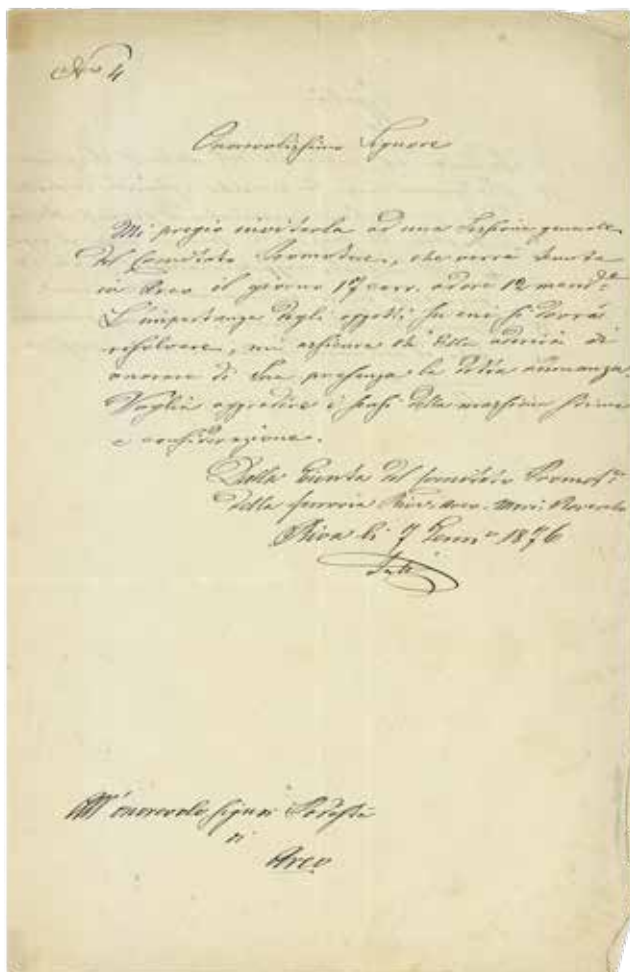 Nro 4
Onorevolissimo Signore
Mi pregio invitarla ad una Sessione generale
del Comitato Promotore, che verrà tenuta
in Arco il giorno 17 corr. ad ore 12 merid.e
L'importanza degli oggetti su cui si dovrà
risolvere, mi assicura ch' Ella vorrà
onorare di Sua presenza la adunanza.
Voglia aggradire i sensi della massima stima
e considerazione.
Dalla Giunta del Comitato Promot.e
della ferrovia Riva. Arco. Mori. Rovereto
Riva li 7 Genn.o 1876
All' onorevole Signor Podestà
di
Arco